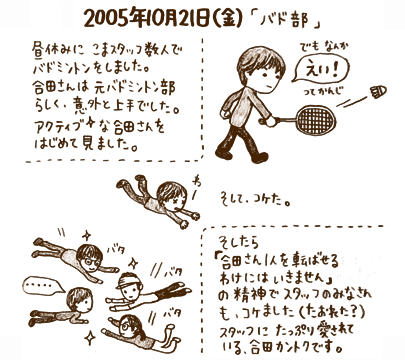 2005年10月21日(金)「バド部」
昼休みに こまスタッフ数人で
バドミントンをしました。
合田さんは 元バドミントン部
らしく、意外と上手でした。
アクティブな合田さんを
はじめて見ました。
でも なんか
えい!
ってかんじ
わー
そして、コケた。
バタ
バタ
バタ
……
そしたら
「合田さん1人を転ばせる
わけには いきません」
の精神で スタッフのみなさん
も、コケました(たおれた?)
スタッフに たっぷり愛されて
いる、合田カントクです。